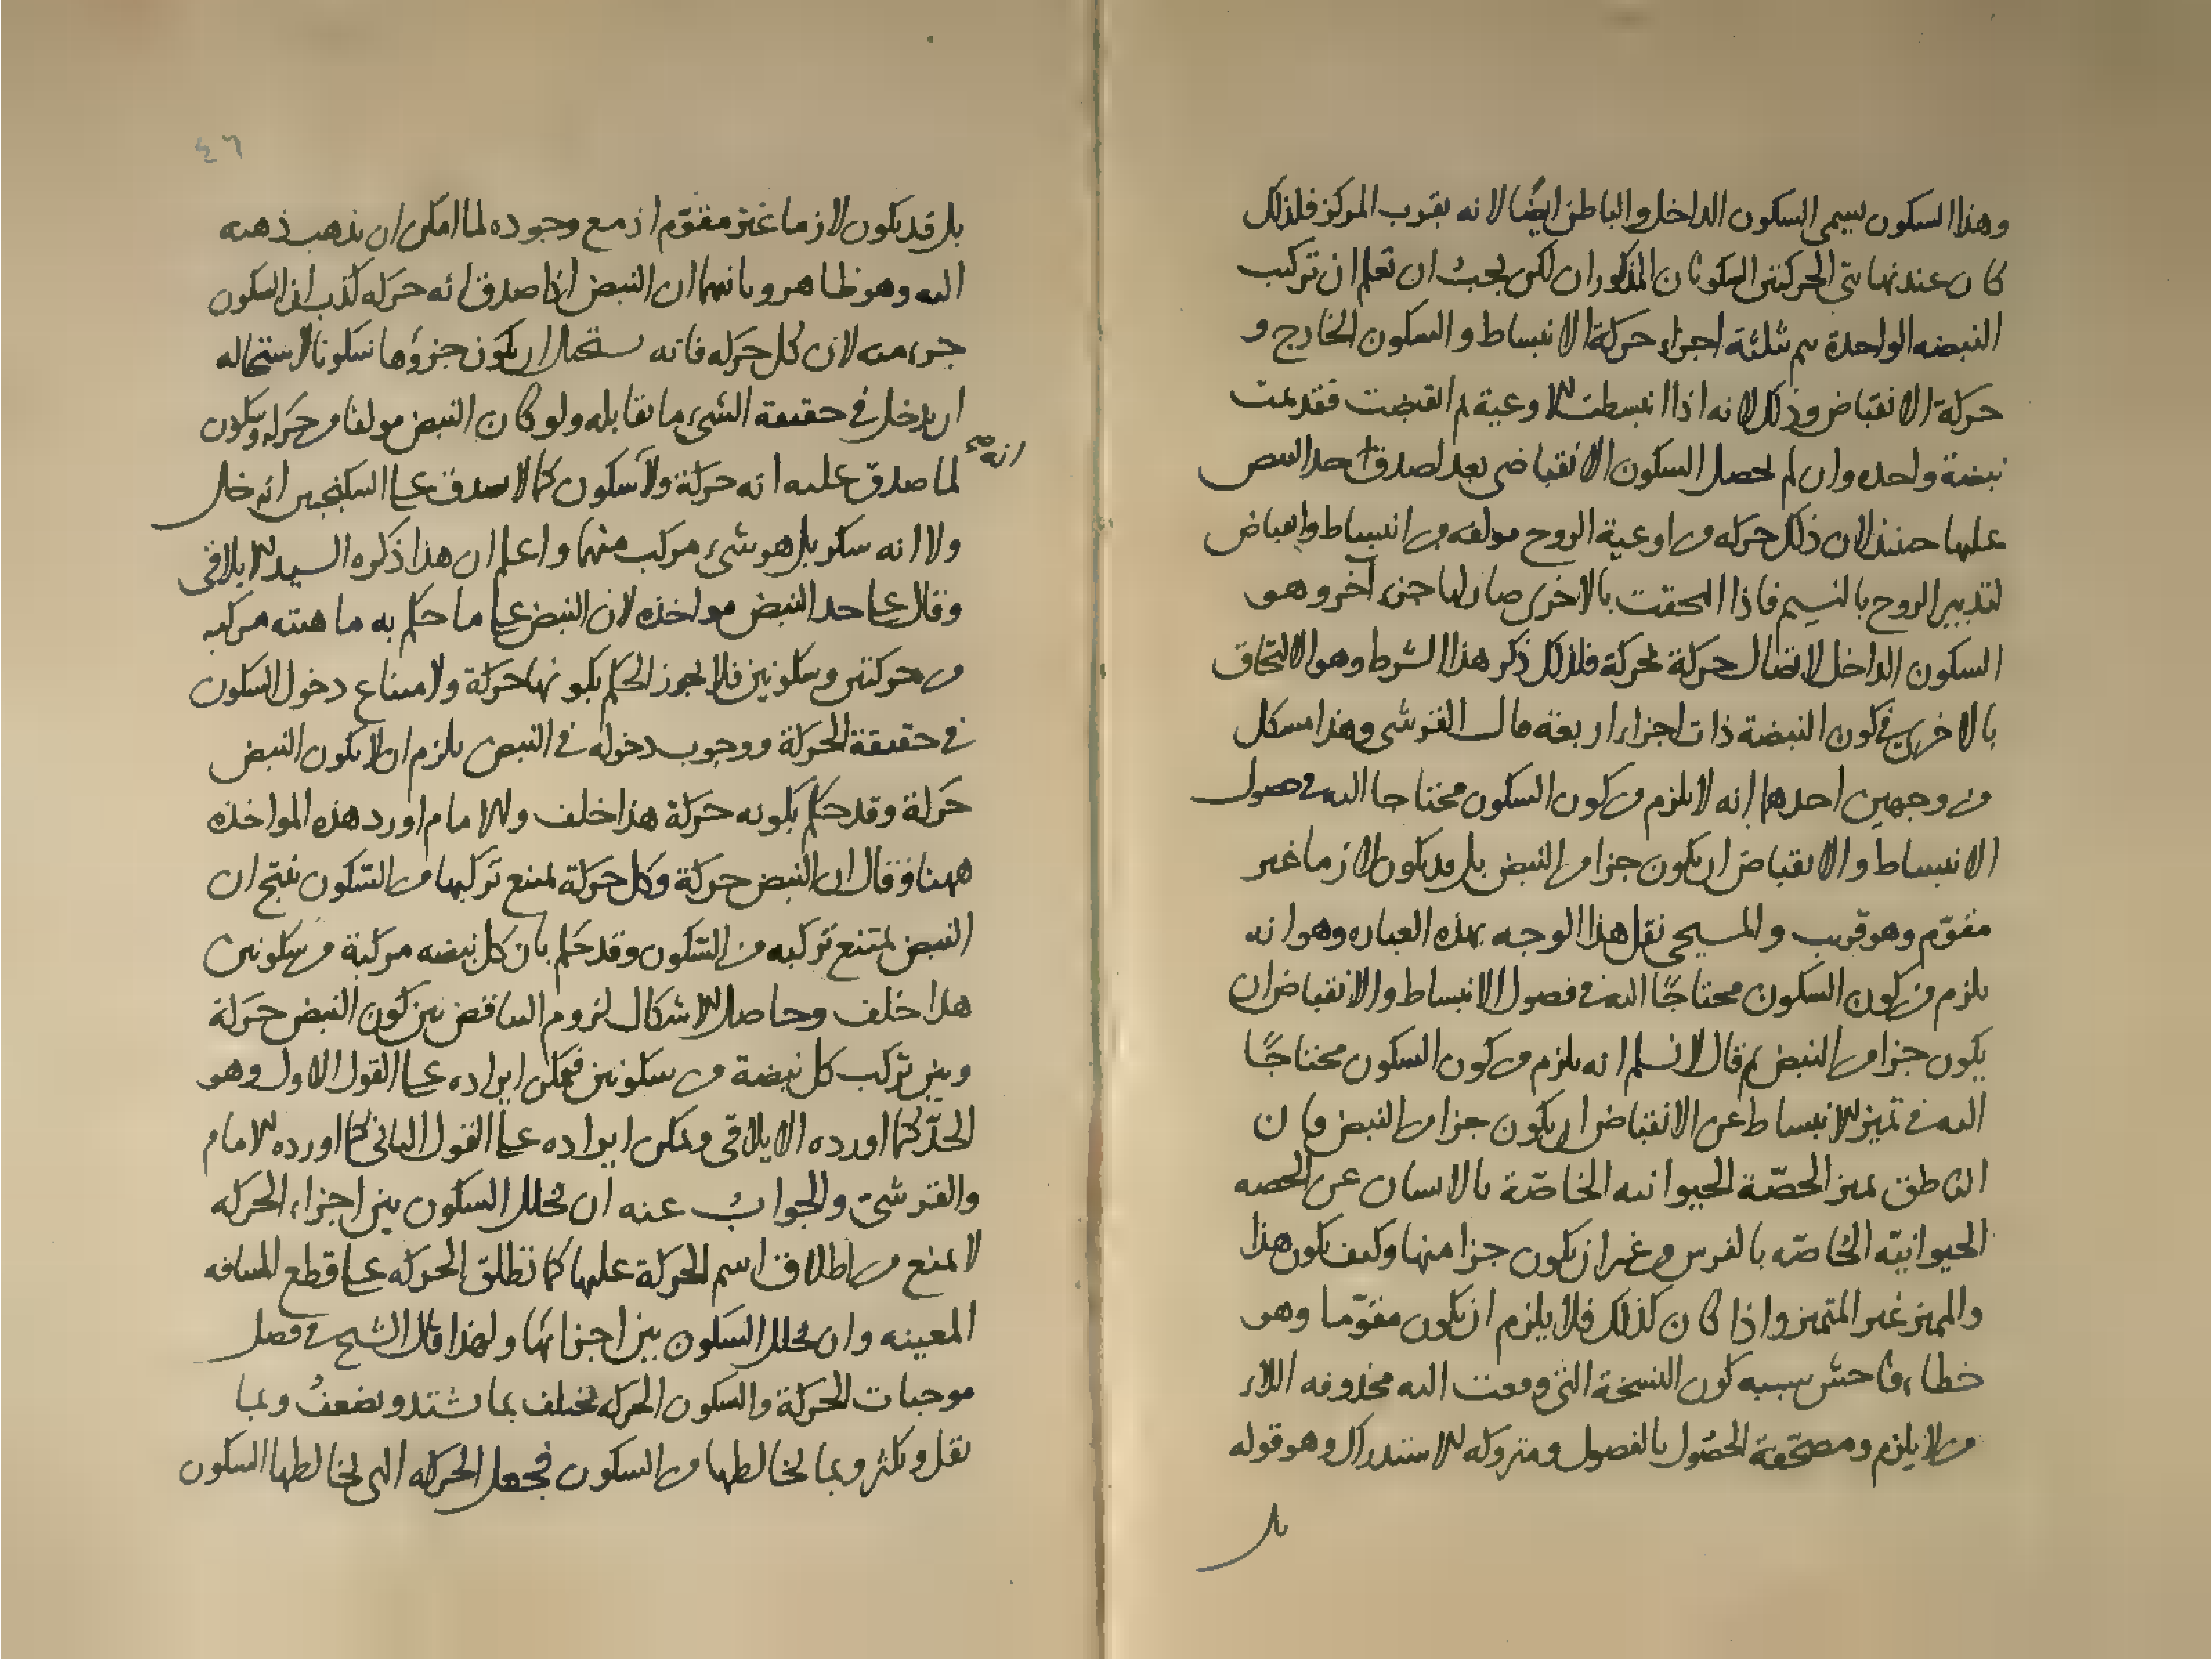 وهذا السكون يسمى السكون الداخل والباطن ايضًا لانه بقرب المركز فلذلك
كان عند نهايتى الحركتين السكونان المذكوران لكن يجب ان تعلم ان تركيب
النبضه الواحدة يتم بثلثة اجزاء حركة الانبساط والسكون الخارج و
حركة الانقباض وذلك لانه اذا انبسطت الاوعية ثم انقبضت فقد تمت
نبضة واحده وان لم يحصل السكون الانقباضى بعد لصدق حد النبض
عليها حينئذ لان ذلك حركه من اوعية الروح مولفه من انبساط وانقباض
لتدبير الروح بالنسيم فاذا التحقت بالاخرى صار لها جزء آخر وهو
السكون الداخل لاتصال حركة بحركة فلذلك ذكر هذا الشرط وهو الالتحاق
بالاخرى فى كون النبضة ذات اجزاء اربعه قال القرشى وهذا مشكل
من وجهين احدهما انه لا يلزم من كون السكون محتاجا اليه فى حصول
الانبساط والانقباض ان يكون جزا من النبض بل قد يكون لازما غير
مقوّم وهو قريب والمسيحى نقل هذا الوجه بهذه العباره وهو انه
يلزم من كون السكون محتاجًا اليه فى فصول الانبساط والانقباض ان
يكون جزا من النبض ثم قال لا نسلم انه يلزم من كون السكون محتاجًا
اليه فى تميز الانبساط عن الانقباض ان يكون جزا من النبض فان
الناطق يميز الحصّة الحيوانيه الخاصّة بالانسان عن الحصه
الحيوانيّه الخاصّه بالفرس من غير ان يكون جزا منها وكيف يكون هذا
والمميز غير المتميز واذا كان كذلك فلا يلزم ان يكون مقوّما وهو
خطاء فاحش سببه كون النسخة التى وقعت اليه محذوفه اللاء
من لا يلزم ومصحّفة الحصُول بالفصول ومتروكه الاستدراك وهو قوله
بل
٤٦
بل قد يكون لازما غير مقوّم اذ مع وجوده لما امكن ان يذهب ذهنه
اليه وهو ظاهر وثانيهما ان النبض اذا صدق انه حركه كذب ان السكون
جزء منه لان كل حركه فانه يستحيل ان يكون جزؤها سكونا لاستحاله
ان يدخل فى حقيقة الشىء ما يقابله ولو كان النبض مولفا من حركه وسكون
لما صدق عليه انه حركة ولا سكون كما لا يصدق على السكنجبين انه خل
انه صح
ولا انه سكر بل هو شىء مركب منهما واعلم ان هذا ذكره السيد الايلاقى
وقال على حد النبض مواخذه لان النبض على ما حكم به ماهيته مركبه
من حركتين وسكونين فلا يجوز الحكم بكونها حركة ولامتناع دخول السكون
فى حقيقة الحركة ووجوب دخوله فى النبض يلزم ان لا يكون النبض
حركة وقد حكم بكونه حركة هذا خلف والامام اورد هذه المواخذه
ههنا وقال ان النبض حركة وكل حركة يمتنع تركبها من السّكون ينتج ان
النبض يمتنع تركبه من السّكون وقد حكم بان كل نبضه مركبة من سكونين
هذا خلف وحاصل الاشكال لزوم التناقض بين كون النبض حركة
وبين تركب كل نبضة من سكونين فيمكن ايراده على القول الاول وهو
الحدّ كما اورده الايلاقى ويمكن ايراده على القول الثانى كما اورده الامام
والقرشى والجواب عنه ان تخلل السكون بين اجزاء الحركه
لا يمنع من اطلاق اسم الحركة عليها كما تطلق الحركه على قطع المسافه
المعينه وان تخلل السكون بين اجزائها ولهذا قال الشيخ فى فصل
موجبات الحركة والسكون الحركه تختلف بما يشتد ويضعف وبما
يقل ويكثر وبما يخالطها من السكون فجعل الحركه التى يخالطها السكون